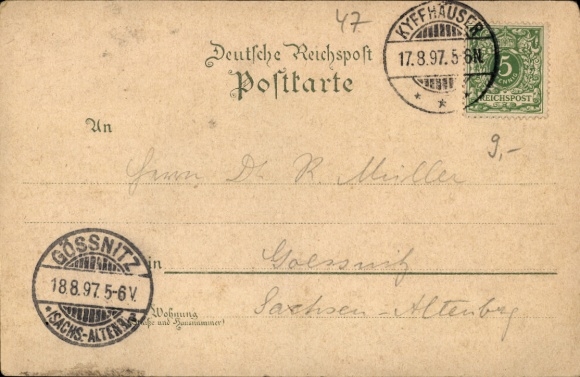 47
KYFFHÄUSER
17.8.97.5-6N.
5
REICHSPOST
Deutsche Reichspost
Postkarte
9,-
An
Herrn Dr. R. Müller
GÖSSNITZ
18.8.97.5-6V.
*(SACHS.-ALTENB.)*
in Goessnitz
Sachsen-Altenbg
Wohnung
(Straße und Hausnummer)